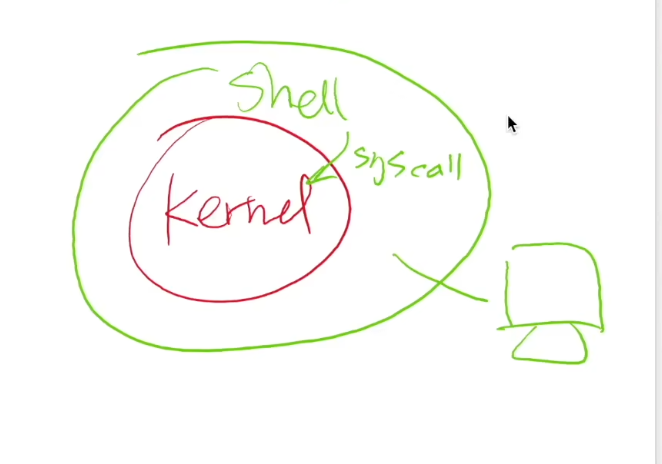 Shell
syscall
Kernel